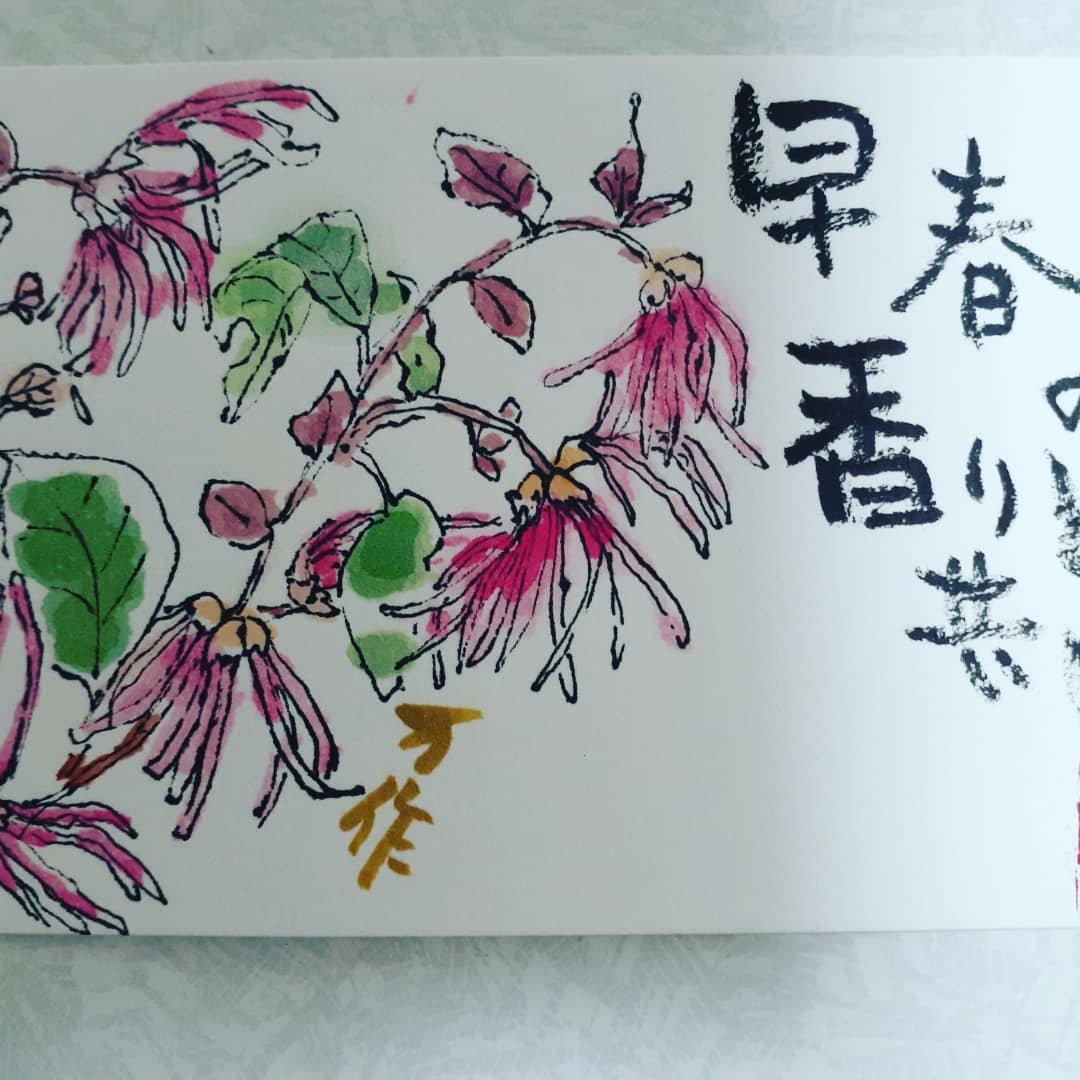 早春の
香り
共
万作